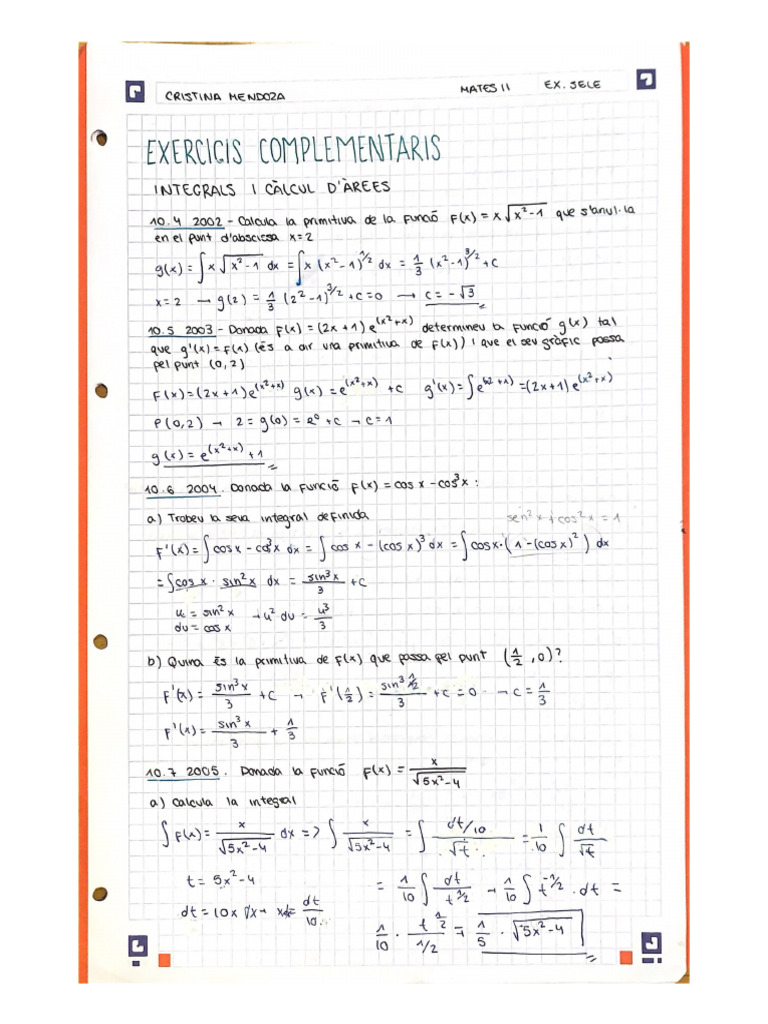 CRISTINA MENDOZA MATES II EX. SELE
EXERCICIS COMPLEMENTARIS
INTEGRALS I CÀLCUL D'ÀREES
10.4 2002 - Calcula la primitiva de la funció F(x) = x√(x²-1) que s'anul·la
en el punt d'abscissa x=2
g(x) = ∫x√(x²-1) dx = ∫x (x²-1)^1/2 dx = 1/3 (x²-1)^3/2 + c
x=2 → g(2) = 1/3 (2²-1)^3/2 + c = 0 → c = -√3
10.5 2003 - Donada F(x) = (2x+1)e^(x²+x) determineu la funció g(x) tal
que g'(x) = F(x) (és a dir una primitiva de F(x)) i que el seu gràfic passa
pel punt (0,2)
F(x) = (2x+1)e^(x²+x) g(x) = e^(x²+x) + c g'(x) = ∫e^(x²+x) = (2x+1)e^(x²+x)
P(0,2) → 2 = g(0) = e⁰ + c → c = 1
g(x) = e^(x²+x) + 1
10.6 2004. Donada la funció F(x) = cos x - cos³x :
a) Trobeu la seva integral definida sen²x + cos²x = 1
F'(x) = ∫cos x - cos³x dx = ∫cos x - (cos x)³ dx = ∫cos x · (1 - (cos x)²) dx
= ∫cos x · sin²x dx = sin³x/3 + c
u = sin²x → u² du = u³/3
du = cos x
b) Quina és la primitiva de F(x) que passa pel punt (π/2, 0)?
F'(x) = sin³x/3 + c → F'(π/2) = sin³ π/2/3 + c = 0 → c = 1/3
F'(x) = sin³x/3 + 1/3
10.7 2005. Donada la funció F(x) = x/√(5x²-4)
a) Calcula la integral
∫F(x) = x/√(5x²-4) dx => ∫ x/√(5x²-4) = ∫ (dt/10)/√t = 1/10 ∫ dt/√t
t = 5x²-4 = 1/10 ∫ dt/t^1/2 → 1/10 ∫t^-1/2 · dt =
dt = 10x dx → xdx = dt/10 1/10 · t^1/2/1/2 = 1/5 · √(5x²-4)